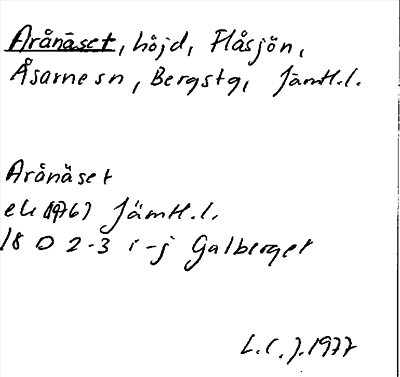 Årånäset, höjd, Flåsjön,
Åsarne sn, Bergs tg, Jämtl.l.
Årånäset
ek (1976) Jämtl.l.
18 D 2-3 i-j Galberget
L.C.J. 1977